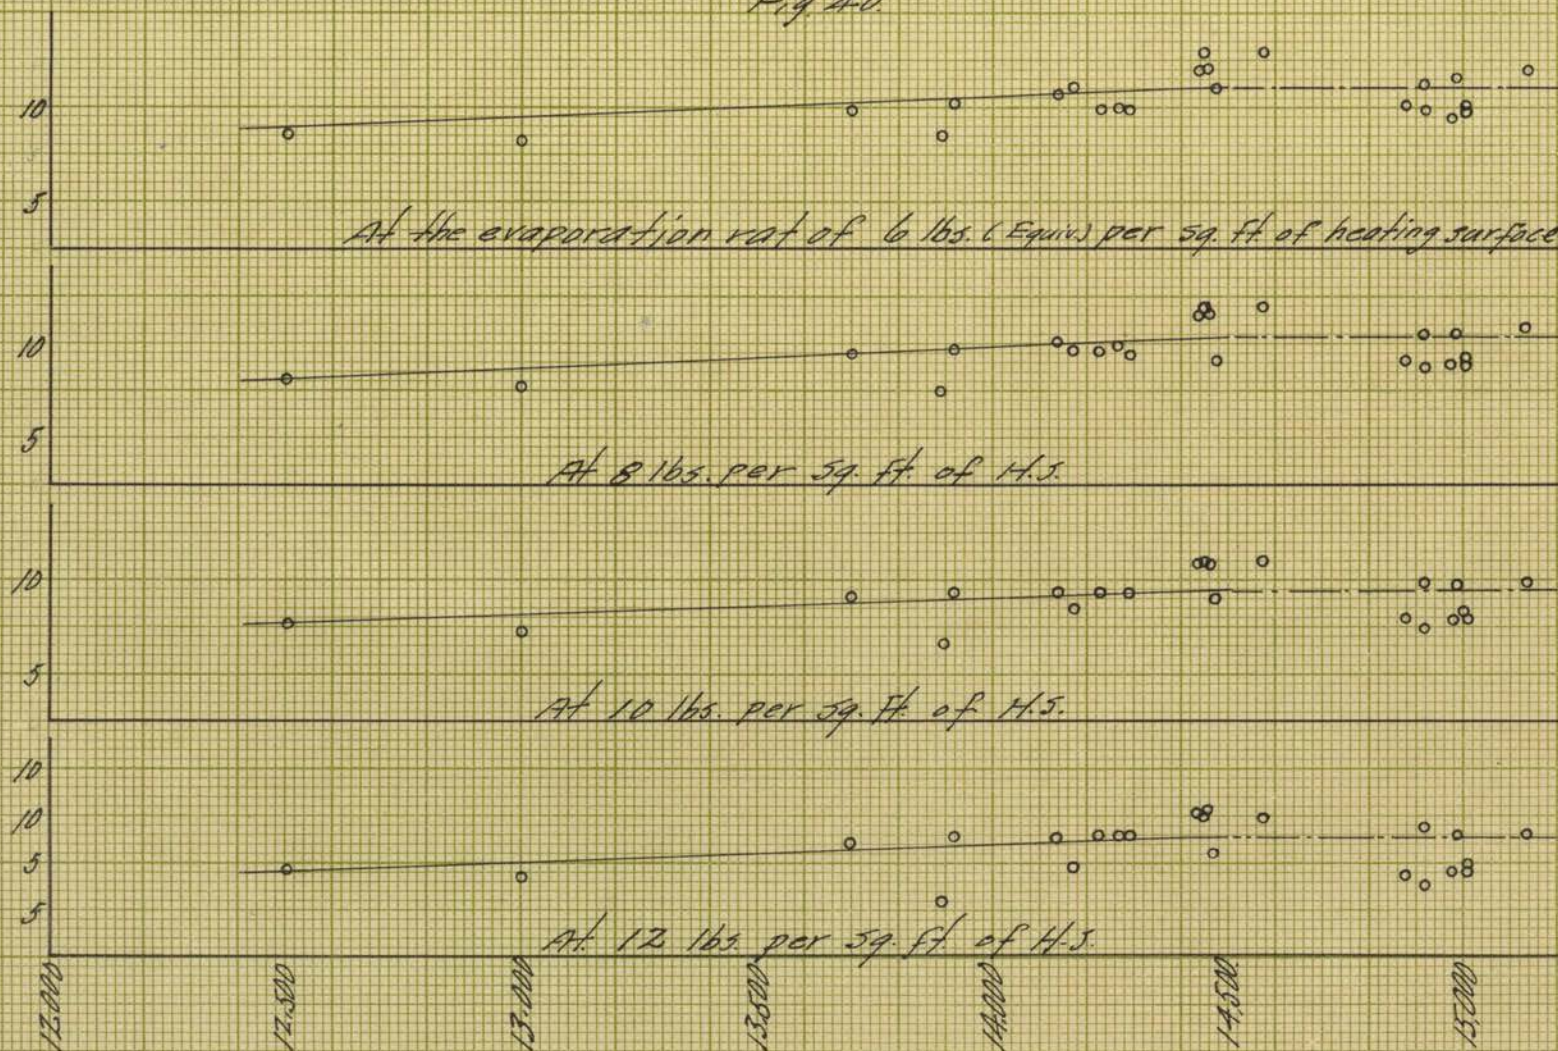 Fig. 40.
10
5
At the evaporation rat of 6 lbs. (Equiv.) per sq. ft of heating surface
10
5
At 8 lbs. per sq. ft. of H.S.
10
5
At 10 lbs. per sq. ft. of H.S.
10
10
5
5
At 12 lbs. per sq. ft of H.S.
12.000 12.500 13.000 13.500 14.000 14.500 15.000